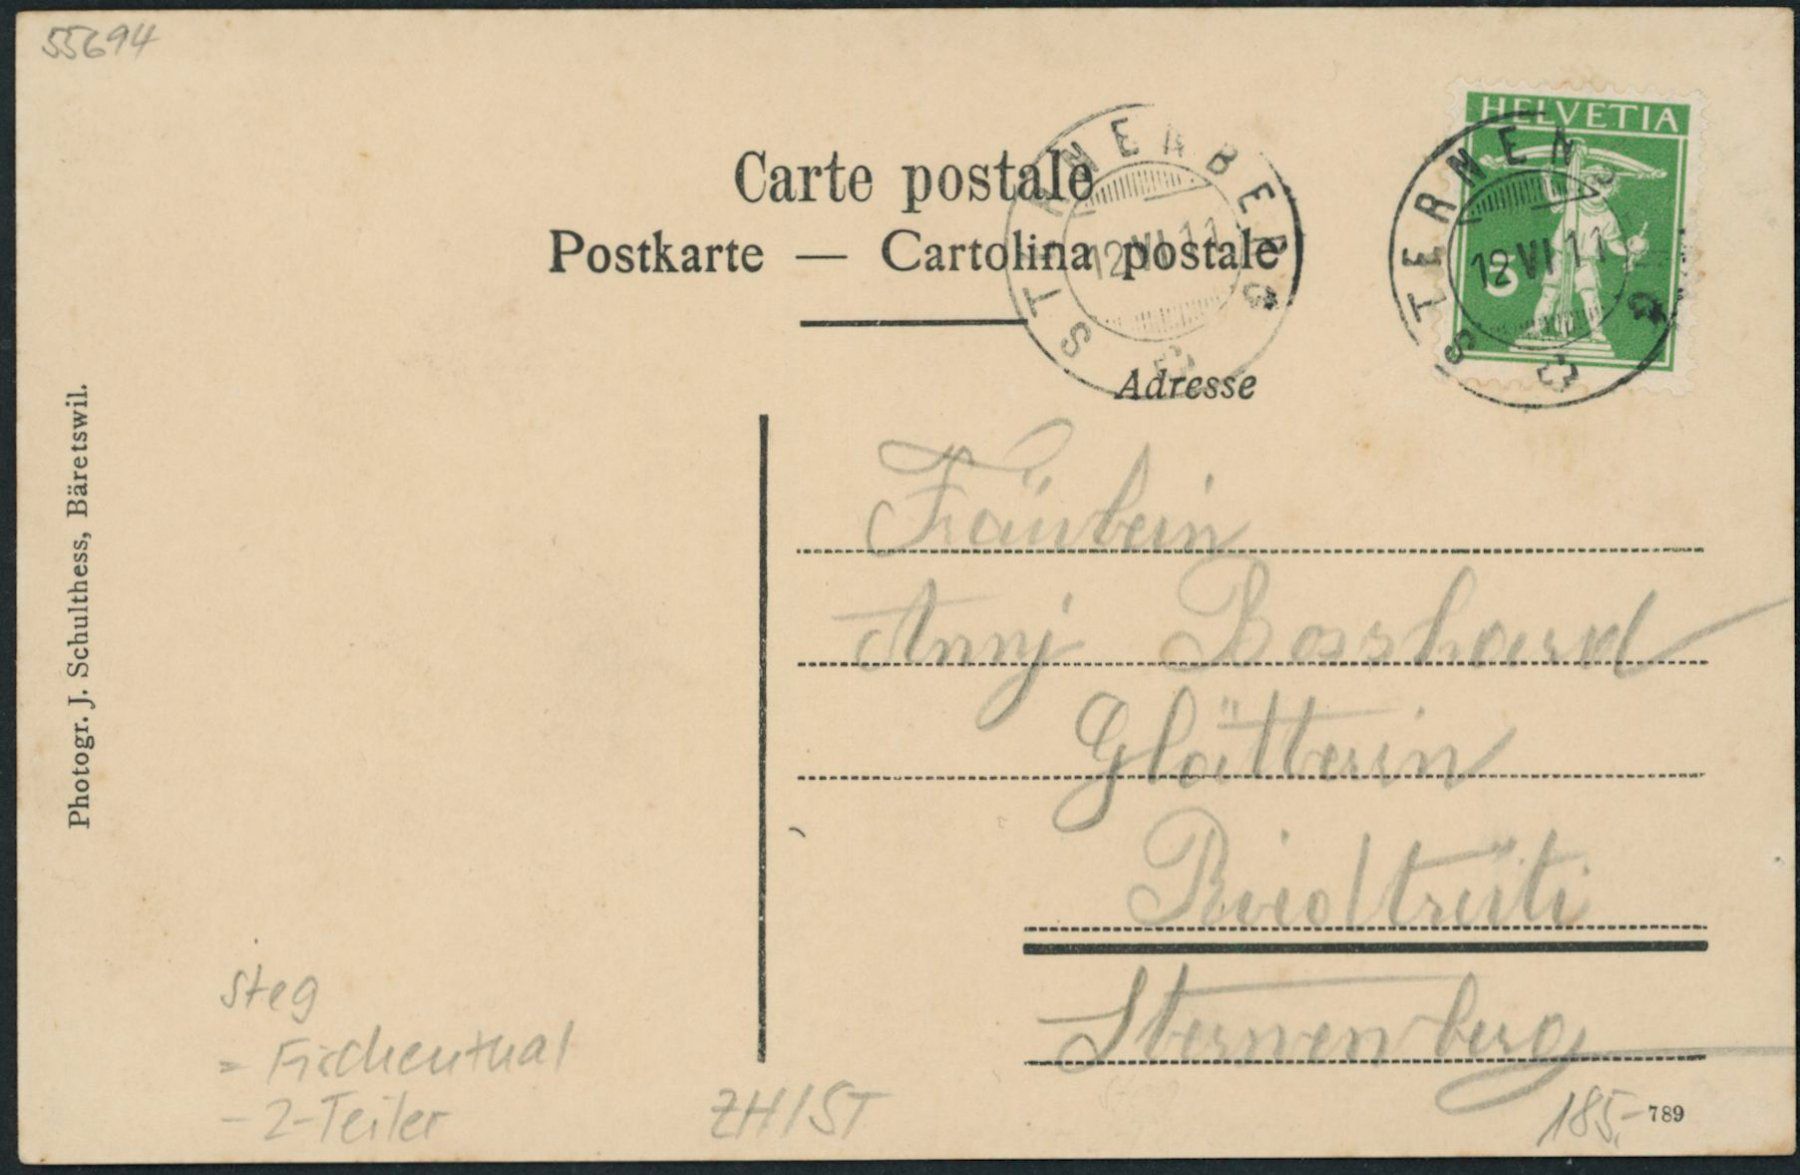 55694
HELVETIA
5
STERNENBERG
12 VI 11
STERNENBERG
12 VI 11
Carte postale
Postkarte — Cartolina postale
Adresse
Photogr. J. Schulthess, Bäretswil.
Fräulein
Annj Bosshard
Glätterin
Sternenberg
Steg
= Fischenthal
- 2-Teiler
ZH/ST
185.-
789